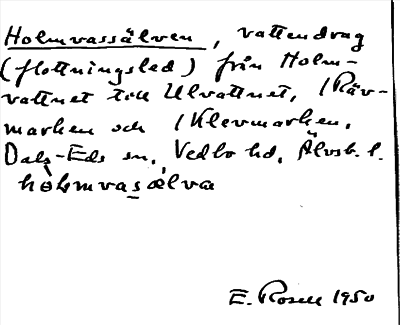 Holmvassälven, vattendrag
(flottningsled) från Holm-
vattnet till Ulvattnet, i Räv-
marken och i Klevmarken,
Dals-Eds sn, Vedbo hd, Älvsb. l.
hòlmvasælva
E. Rosell 1950